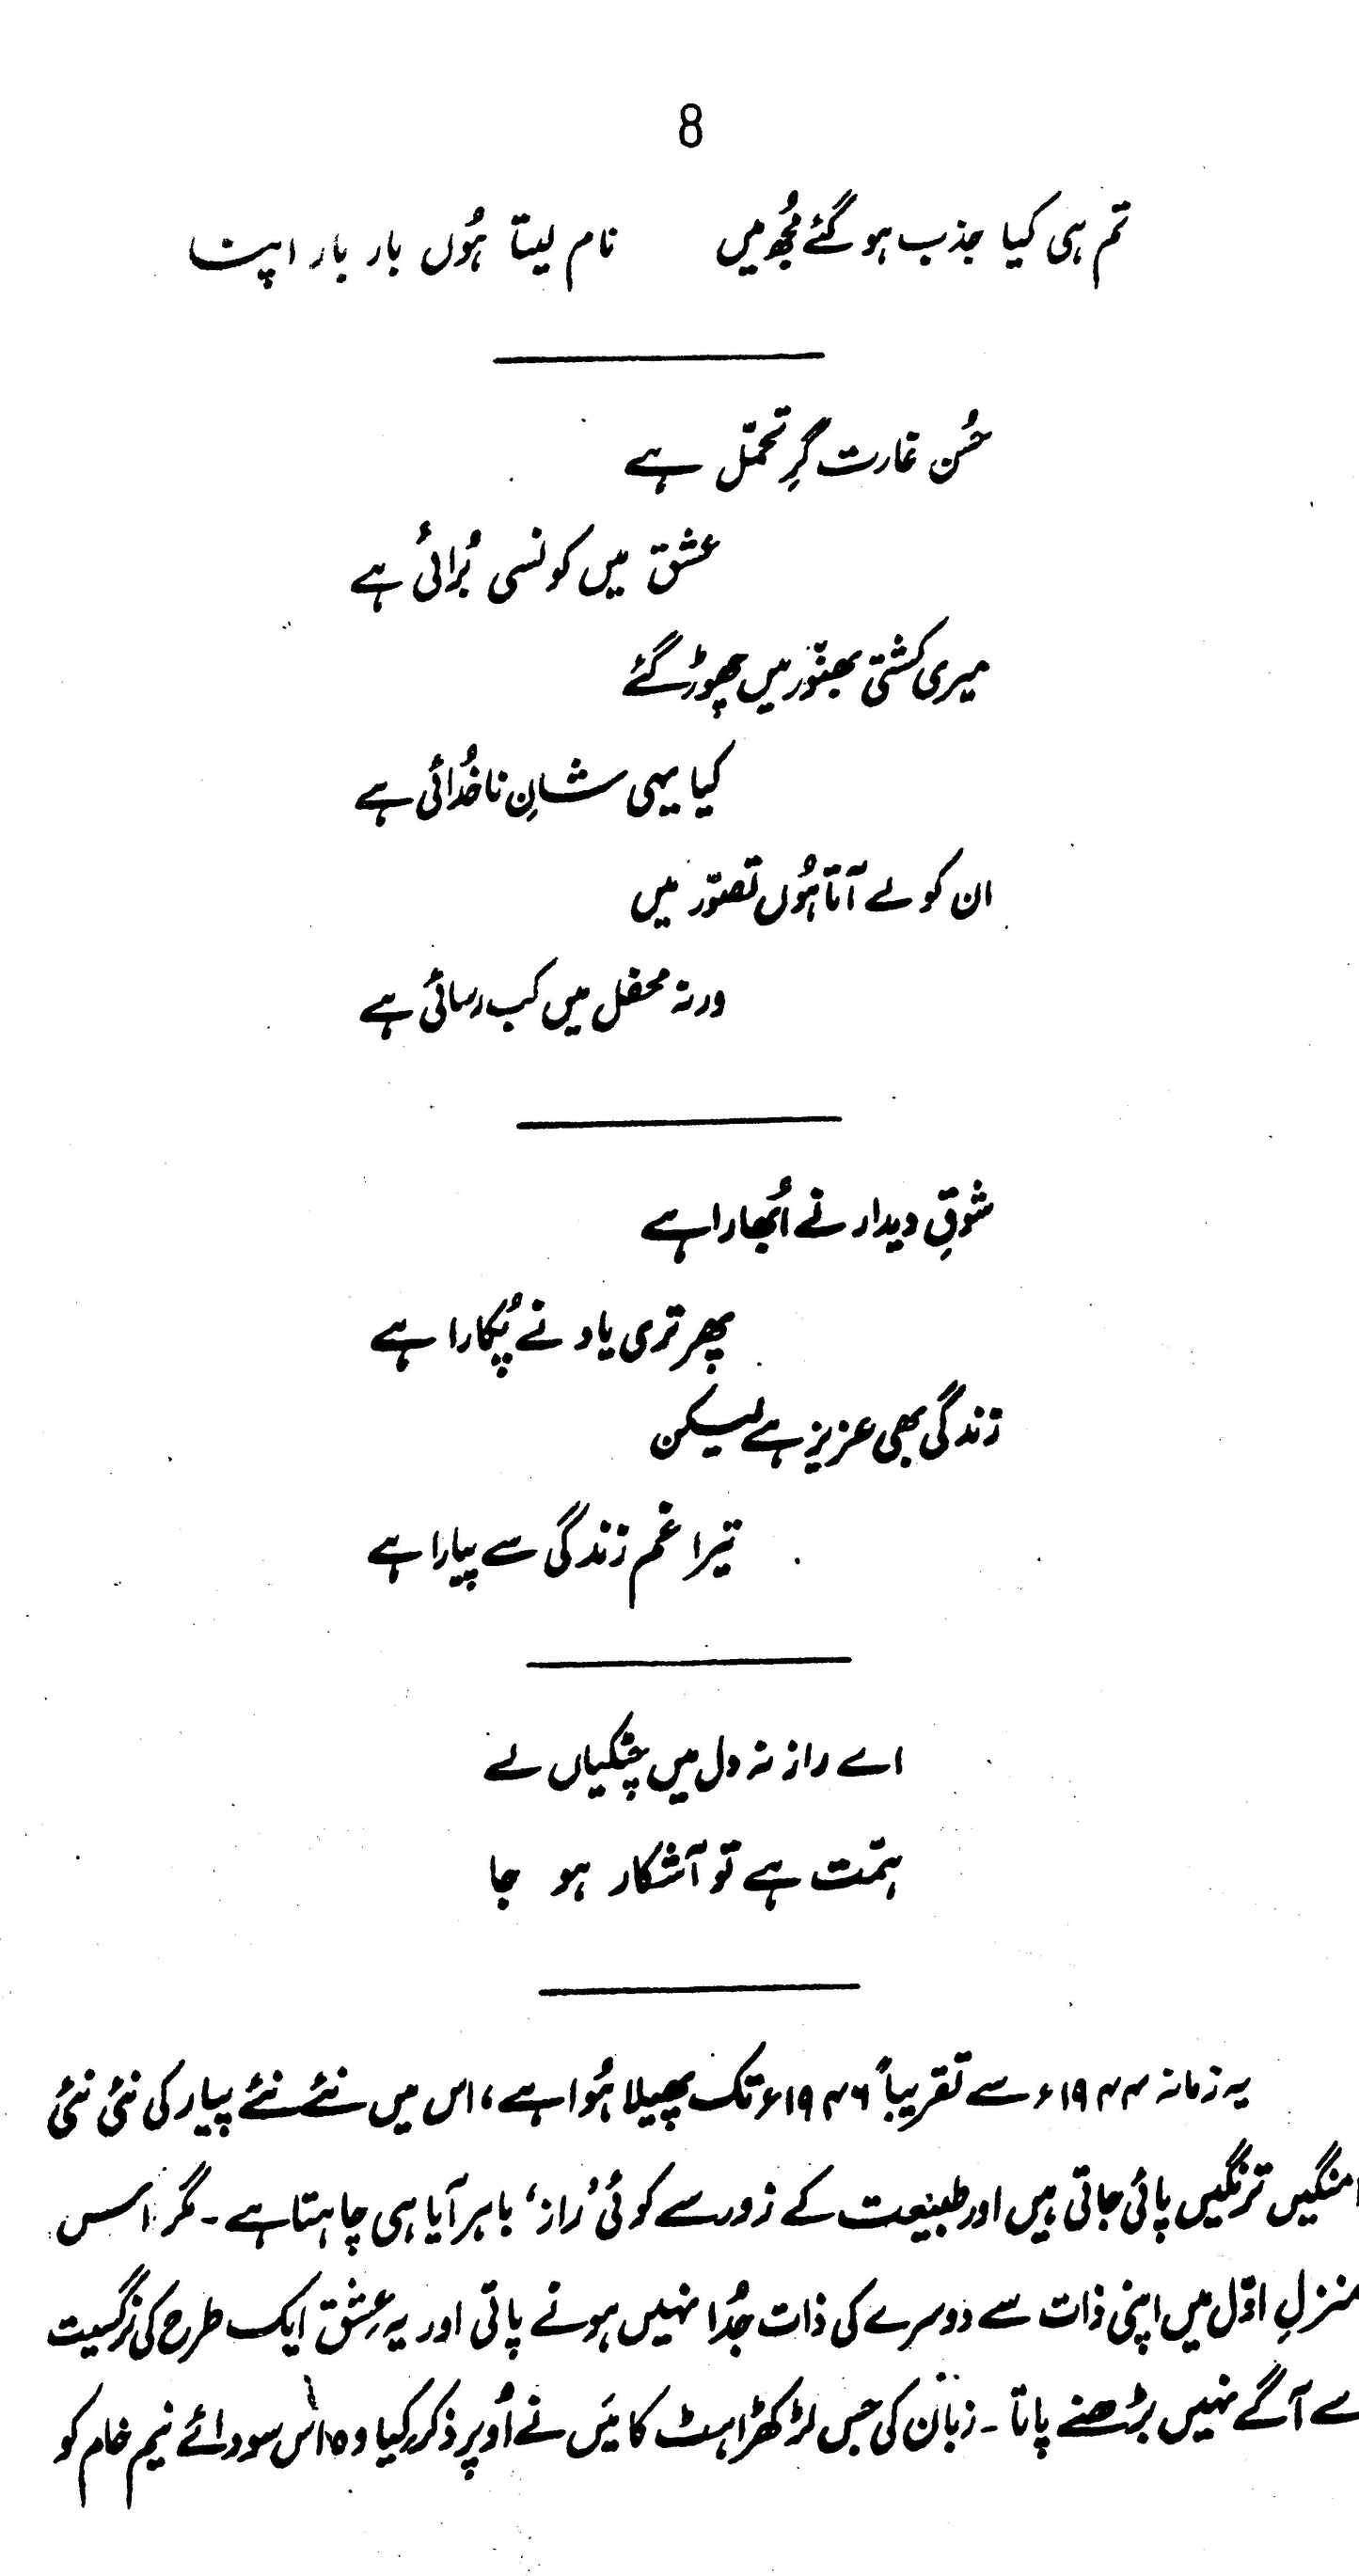 8
تم ہی کیا جذب ہو گئے مُجھ میں نام لیتا ہُوں بار بار اپنا
حُسن غارت گرِ تحمّل ہے
عشق میں کونسی بُرائی ہے
میری کشتی بھنوَر میں چھوڑ گئے
کیا یہی شانِ ناخُدائی ہے
ان کو لے آتا ہُوں تصوّر میں
ورنہ محفل میں کب رسائی ہے
شوقِ دیدار نے اُبھارا ہے
پھر تری یاد نے پُکارا ہے
زندگی بھی عزیز ہے لیکن
تیرا غم زندگی سے پیارا ہے
اے راز نہ دل میں چٹکیاں لے
ہمّت ہے تو آشکار ہو جا
یہ زمانہ ۱۹۴۴ء سے تقریباً ۱۹۴۶ء تک پھیلا ہُوا ہے، اس میں نئے نئے پیار کی نئی نئی
امنگیں ترنگیں پائی جاتی ہیں اور طبیعت کے زور سے کوئی 'راز' باہر آیا ہی چاہتا ہے۔ مگر اس
منزلِ اوّل میں اپنی ذات سے دوسرے کی ذات جُدا نہیں ہونے پاتی اور یہ عِشق ایک طرح کی نرگسیت
سے آگے نہیں بڑھنے پاتا۔ زبان کی جس لڑکھڑاہٹ کا میَں نے اُوپر ذکر کیا وہ اس سودائے نیم خام کو